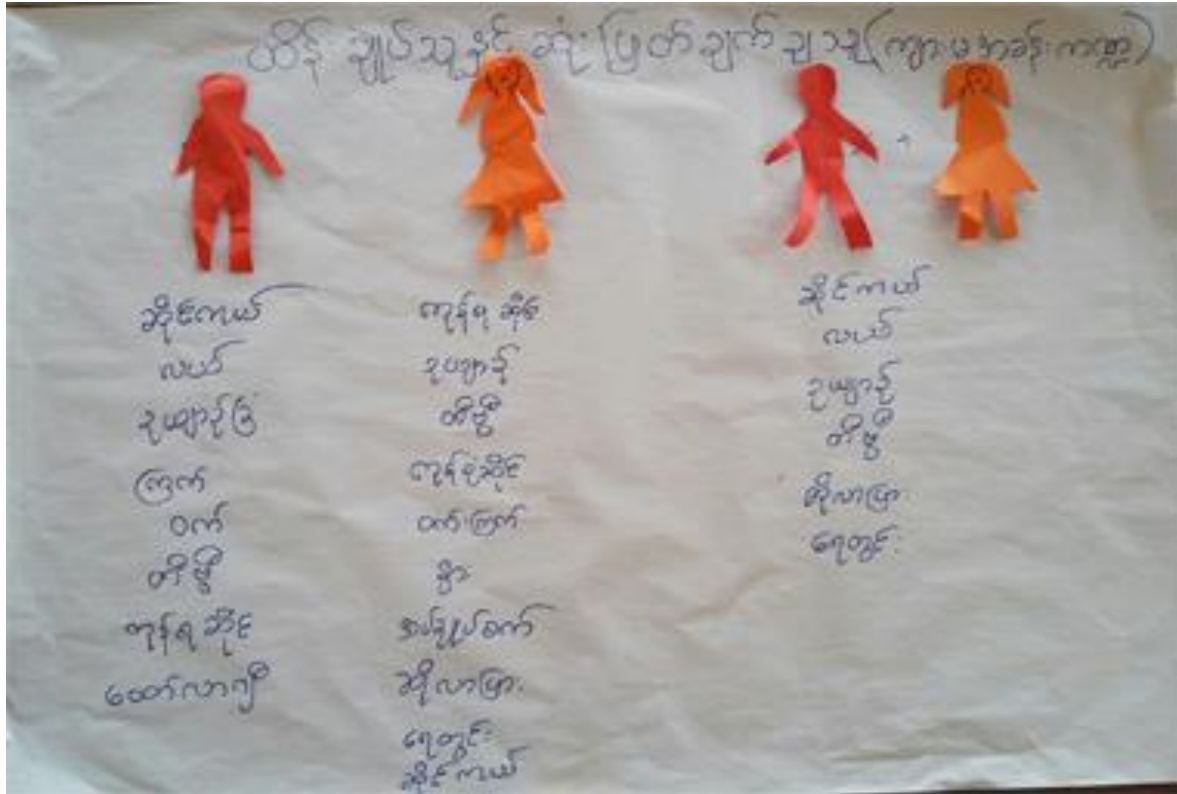 ထိန်းချုပ်သူနှင့် ဆုံးဖြတ်ချက်ချသူ (ကျား၊မ အခန်းကဏ္ဍ)
ဆိုင်ကယ်
လယ်
ဥယျာဉ်ခြံ
ကြက်
ဝက်
တီဗွီ
ကုန်စုံဆိုင်
ထော်လာဂျီ
ကုန်စုံဆိုင်
ဥယျာဉ်
တီဗွီ
ကုန်စုံဆိုင်
ဝက်၊ကြက်
နွား
အပ်ချုပ်စက်
ဆိုလာပြား
ရေတွင်း
ဆိုင်ကယ်
ဆိုင်ကယ်
လယ်
ဥယျာဉ်
တီဗွီ
ဆိုလာပြား
ရေတွင်း